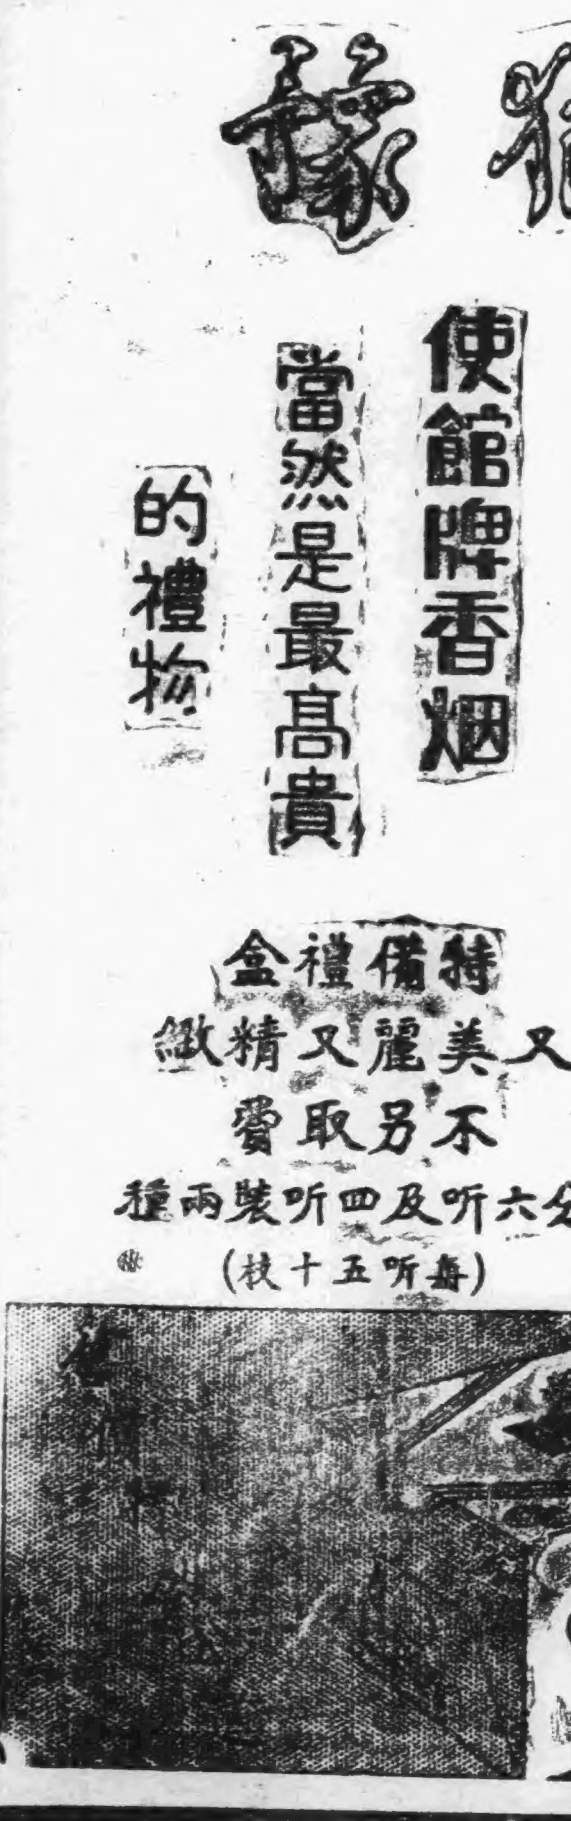 豫
使館牌香烟
當然是最高貴
的禮物
特備禮盒
又美麗又精緻
不另取費
分六听及四听裝兩種
(每听五十枝)